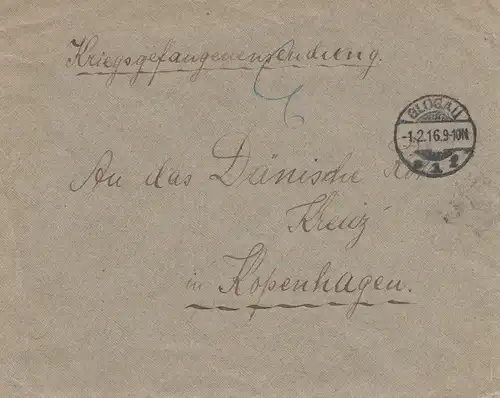 Kriegsgefangenensendung.
GLOGAU
-1.2.16.9-10N.
* 1 *
An das Dänische Rote
Kreuz
in Kopenhagen.